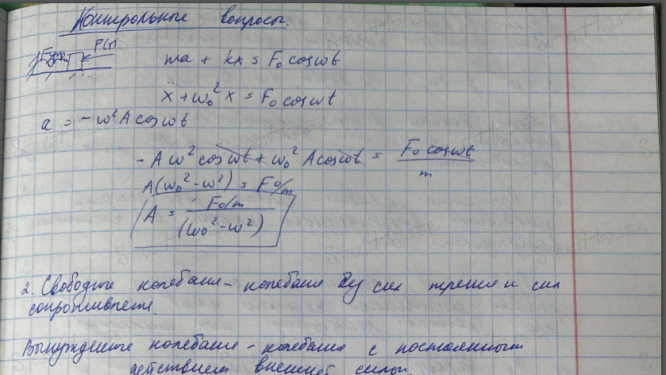 Контрольные вопросы.
F(t)
ma + kx = F₀ cos ωt
x + ω₀² x = F₀ cos ωt
a = - ω² A cos ωt
- A ω² cos ωt + ω₀² A cos ωt = F₀ cos ωt / m
A (ω₀² - ω²) = F₀/m
A = F₀/m / (ω₀² - ω²)
2. Свободные колебания - колебания без сил трения и сил
сопротивления.
Вынужденные колебания - колебания с постоянным
действием внешней силы.